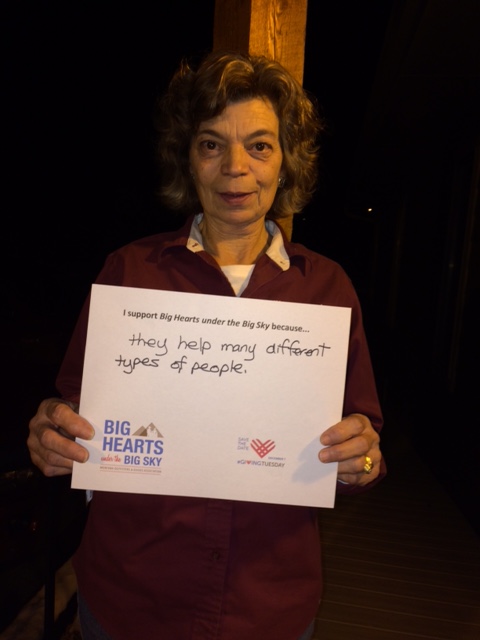 I support Big Hearts under the Big Sky because...
they help many different
types of people.
BIG
HEARTS
under the BIG SKY
SAVE
THE
DATE
#GIVINGTUESDAY